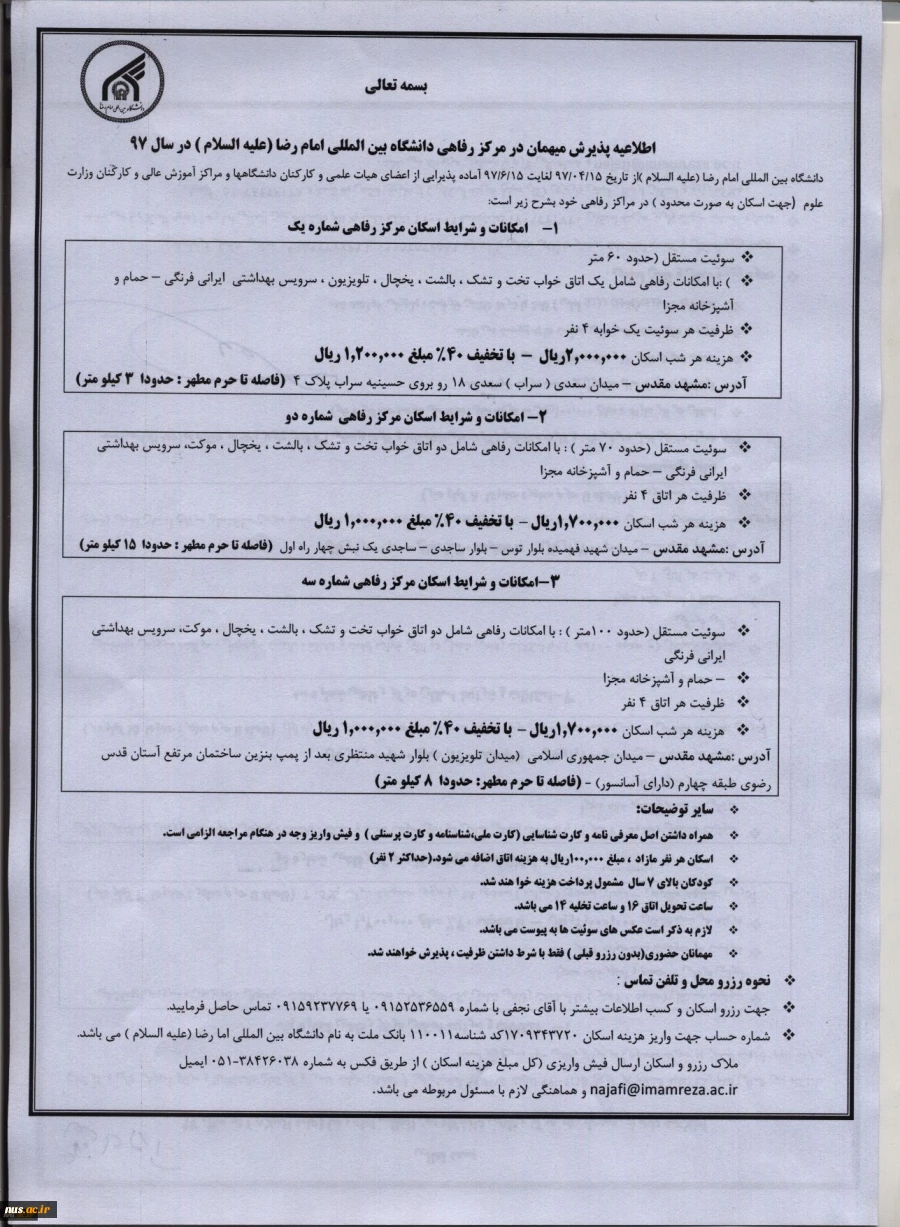 بسمه تعالی
اطلاعیه پذیرش میهمان در مرکز رفاهی دانشگاه بین المللی امام رضا (علیه السلام ) در سال ۹۷
دانشگاه بین المللی امام رضا (علیه السلام )از تاریخ ۹۷/۰۴/۱۵ لغایت ۹۷/۶/۱۵ آماده پذیرایی از اعضای هیات علمی و کارکنان دانشگاهها و مراکز آموزش عالی و کارکنان وزارت
علوم (جهت اسکان به صورت محدود ) در مراکز رفاهی خود بشرح زیر است:
۱- امکانات و شرایط اسکان مرکز رفاهی شماره یک
❖ سوئیت مستقل (حدود ۶۰ متر
❖ ) :با امکانات رفاهی شامل یک اتاق خواب تخت و تشک ، بالشت ، یخچال ، تلویزیون ، سرویس بهداشتی ایرانی فرنگی – حمام و
آشپزخانه مجزا
❖ ظرفیت هر سوئیت یک خوابه ۴ نفر
❖ هزینه هر شب اسکان ۲,۰۰۰,۰۰۰ریال – با تخفیف ۴۰٪ مبلغ ۱,۲۰۰,۰۰۰ ریال
آدرس :مشهد مقدس – میدان سعدی ( سراب ) سعدی ۱۸ رو بروی حسینیه سراب پلاک ۴ (فاصله تا حرم مطهر : حدودا ۳ کیلو متر)
۲- امکانات و شرایط اسکان مرکز رفاهی شماره دو
❖ سوئیت مستقل (حدود ۷۰ متر ) : با امکانات رفاهی شامل دو اتاق خواب تخت و تشک ، بالشت ، یخچال ، موکت، سرویس بهداشتی
ایرانی فرنگی – حمام و آشپزخانه مجزا
❖ ظرفیت هر اتاق ۴ نفر
❖ هزینه هر شب اسکان ۱,۷۰۰,۰۰۰ریال – با تخفیف ۴۰٪ مبلغ ۱,۰۰۰,۰۰۰ ریال
آدرس :مشهد مقدس – میدان شهید فهمیده بلوار توس – بلوار ساجدی – ساجدی یک نبش چهار راه اول (فاصله تا حرم مطهر : حدودا ۱۵ کیلو متر)
۳-امکانات و شرایط اسکان مرکز رفاهی شماره سه
❖ سوئیت مستقل (حدود ۱۰۰متر ) : با امکانات رفاهی شامل دو اتاق خواب تخت و تشک ، بالشت ، یخچال ، موکت، سرویس بهداشتی
ایرانی فرنگی
❖ – حمام و آشپزخانه مجزا
❖ ظرفیت هر اتاق ۴ نفر
❖ هزینه هر شب اسکان ۱,۷۰۰,۰۰۰ریال – با تخفیف ۴۰٪ مبلغ ۱,۰۰۰,۰۰۰ ریال
آدرس :مشهد مقدس – میدان جمهوری اسلامی (میدان تلویزیون ) بلوار شهید منتظری بعد از پمپ بنزین ساختمان مرتفع آستان قدس
رضوی طبقه چهارم (دارای آسانسور) - (فاصله تا حرم مطهر: حدودا ۸ کیلو متر)
❖ سایر توضیحات:
❖ همراه داشتن اصل معرفی نامه و کارت شناسایی (کارت ملی،شناسنامه و کارت پرسنلی ) و فیش واریز وجه در هنگام مراجعه الزامی است.
❖ اسکان هر نفر مازاد ، مبلغ ۱۰۰,۰۰۰ریال به هزینه اتاق اضافه می شود.(حداکثر ۲ نفر)
❖ کودکان بالای ۷ سال مشمول پرداخت هزینه خوا هند شد.
❖ ساعت تحویل اتاق ۱۶ و ساعت تخلیه ۱۴ می باشد.
❖ لازم به ذکر است عکس های سوئیت ها به پیوست می باشد.
❖ مهمانان حضوری(بدون رزرو قبلی ) فقط با شرط داشتن ظرفیت ، پذیرش خواهند شد.
❖ نحوه رزرو محل و تلفن تماس :
❖ جهت رزرو اسکان و کسب اطلاعات بیشتر با آقای نجفی با شماره ۰۹۱۵۲۵۳۶۵۵۹ یا ۰۹۱۵۹۲۳۷۷۶۹ تماس حاصل فرمایید.
❖ شماره حساب جهت واریز هزینه اسکان ۱۷۰۹۳۴۳۷۲۰کد شناسه۱۱۰۰۱۱ بانک ملت به نام دانشگاه بین المللی اما رضا (علیه السلام ) می باشد.
ملاک رزرو و اسکان ارسال فیش واریزی (کل مبلغ هزینه اسکان ) از طریق فکس به شماره ۳۸۴۲۶۰۳۸-۰۵۱ ایمیل
najafi@imamreza.ac.ir و هماهنگی لازم با مسئول مربوطه می باشد.
nus.ac.ir